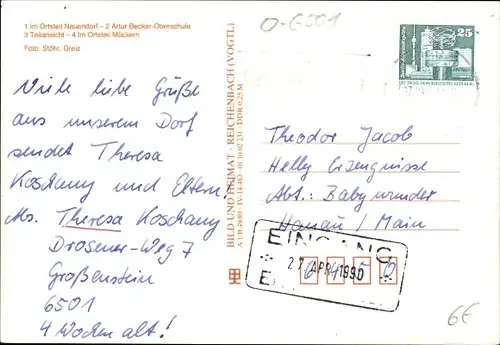 1 im Ortsteil Nauendorf – 2 Artur-Becker-Oberschule
3 Teilansicht – 4 im Ortsteil Mückern
Foto: Stöhr, Greiz
O-6501
25
Viele liebe Grüße
aus unserem Dorf
sendet Theresa
Koschany und Eltern,
Abs. Theresa Koschany
Drosener-Weg 7
Großenstein
6501
4 Wochen alt!
BILD UND HEIMAT · REICHENBACH (VOGTL)
Theodor Jacob
Helly Erzeugnisse
Abt.: Babywunder
Hanau / Main
EINGANG
27. APR. 1990
6450
6€